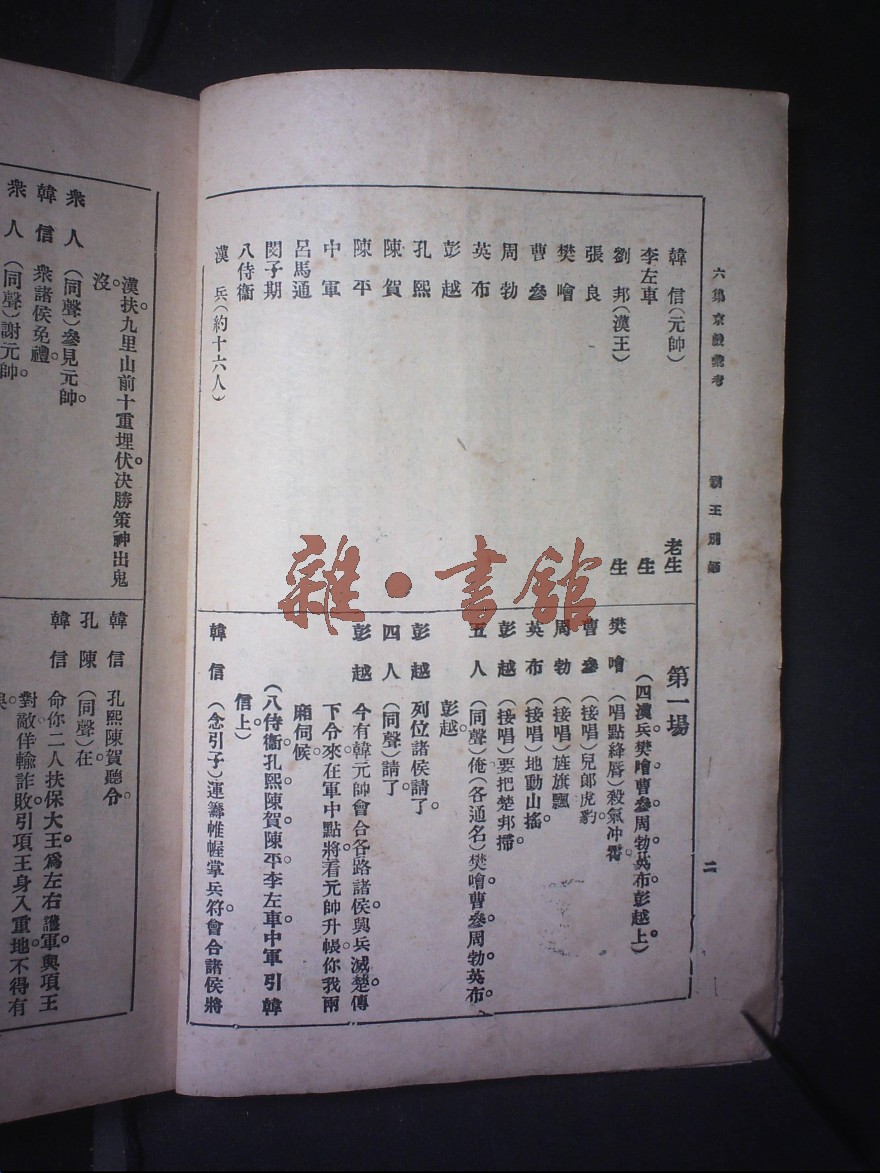 六集京戲彙考
霸王別姬
二
韓信(元帥) 老生
李左車 生
劉邦(漢王) 生
張良
樊噲
曹參
周勃
英布
彭越
孔熙
陳賀
陳平
中軍
呂馬通
閔子期
八侍衞
漢兵(約十六人)
第一場
(四漢兵樊噲曹參周勃英布彭越上)
樊噲(唱點絳唇)殺氣冲霄。
曹參(接唱)兒郎虎豹。
周勃(接唱)旌旗飄
英布(接唱)地動山搖。
彭越(接唱)要把楚邦掃
五人(同聲)俺(各通名)樊噲。曹參。周勃。英布、
彭越。
彭越 列位諸侯請了。
四人(同聲)請了。
彭越 今有韓元帥會合各路諸侯。興兵滅楚。傳
下令來。在軍中點將。看元帥升帳。你我兩
廂伺候。
(八侍衞。孔熙。陳賀。陳平。李左車。中軍引韓
信上。)
韓信(念引子)運籌帷幄掌兵符。會合諸侯將
漢扶。九里山前十重埋伏。决勝策神出鬼
沒。
衆人(同聲)參見元帥。
韓信 衆諸侯免禮。
衆人(同聲)謝元帥。
韓信 孔熙陳賀聽令。
孔陳(同聲)在
韓信 命你二人扶保大王。爲左右護軍。與項王
對敵。佯輸詐敗。引項王身入重地。不得有